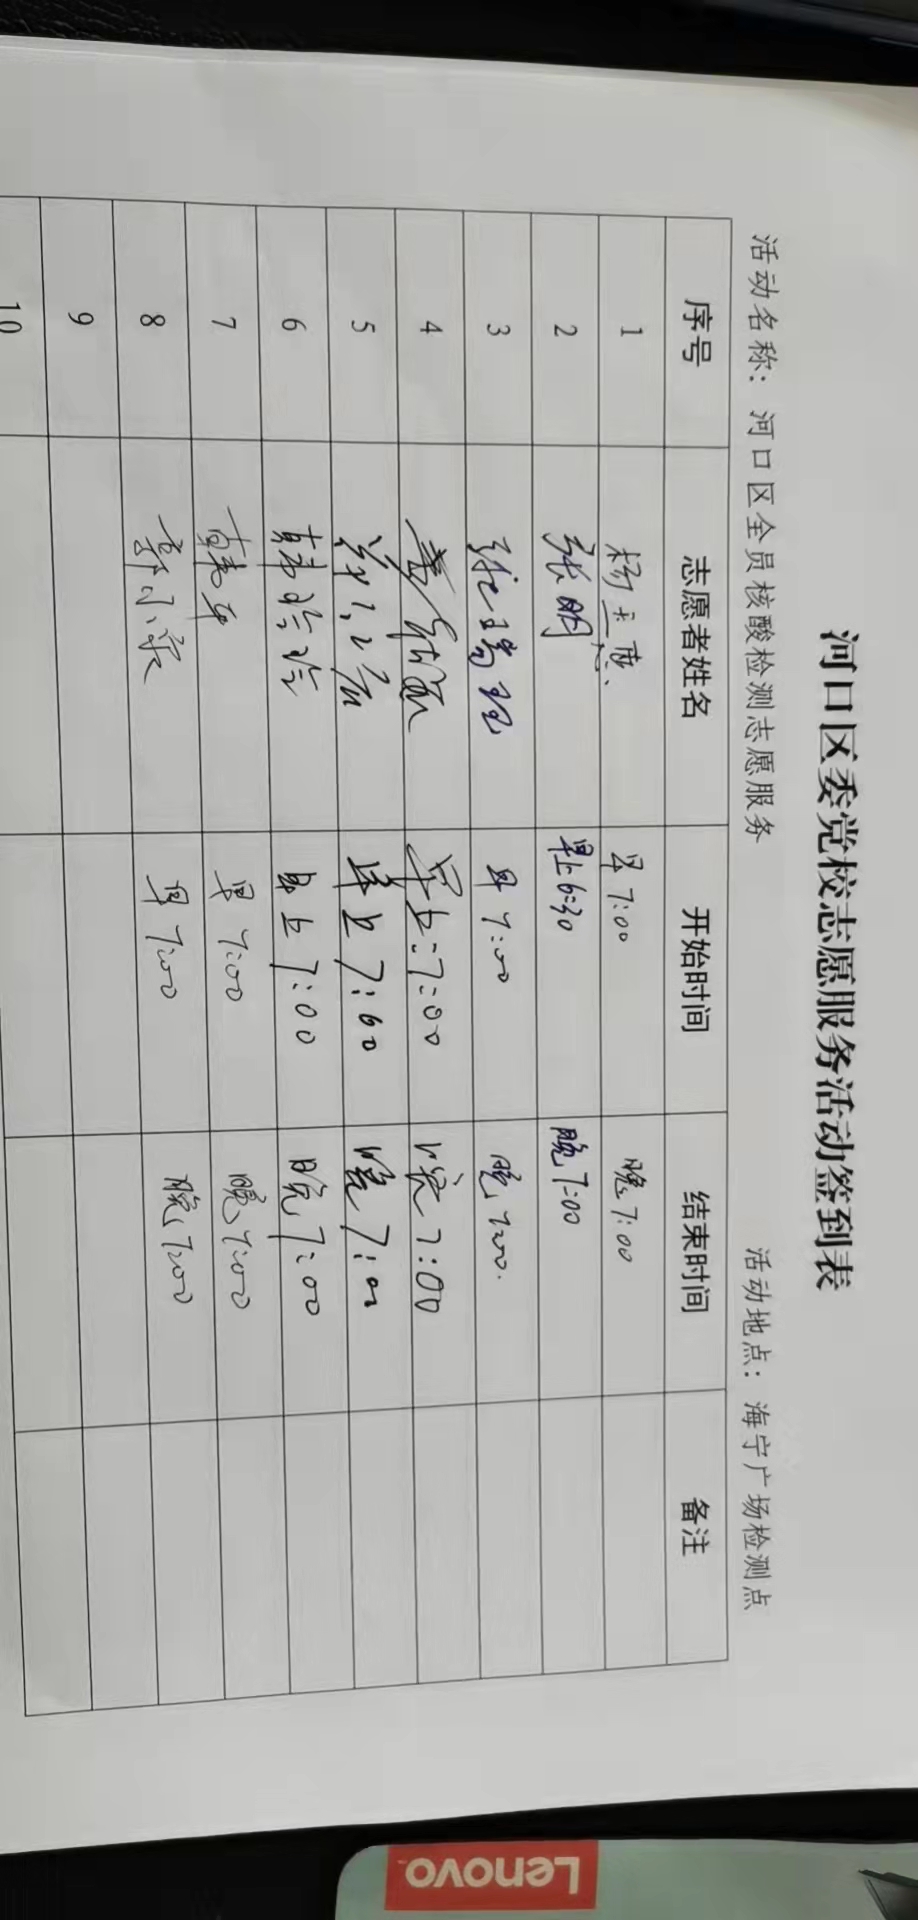 河口区委党校志愿服务活动签到表
活动名称：河口区全员核酸检测志愿服务 活动地点：海宁广场检测点
序号 志愿者姓名 开始时间 结束时间 备注
1 早7:00 晚7:00
2 张明 早上6:30 晚7:00
3 张瑞 早7:00 晚7:00.
4 早上:7:00 晚7:00
5 早上7:00 晚7:00
6 韩玲玲 早上7:00 晚7:00
7 早7:00 晚7:00
8 郭小 早7:00 晚7:00
9
10
Lenovo